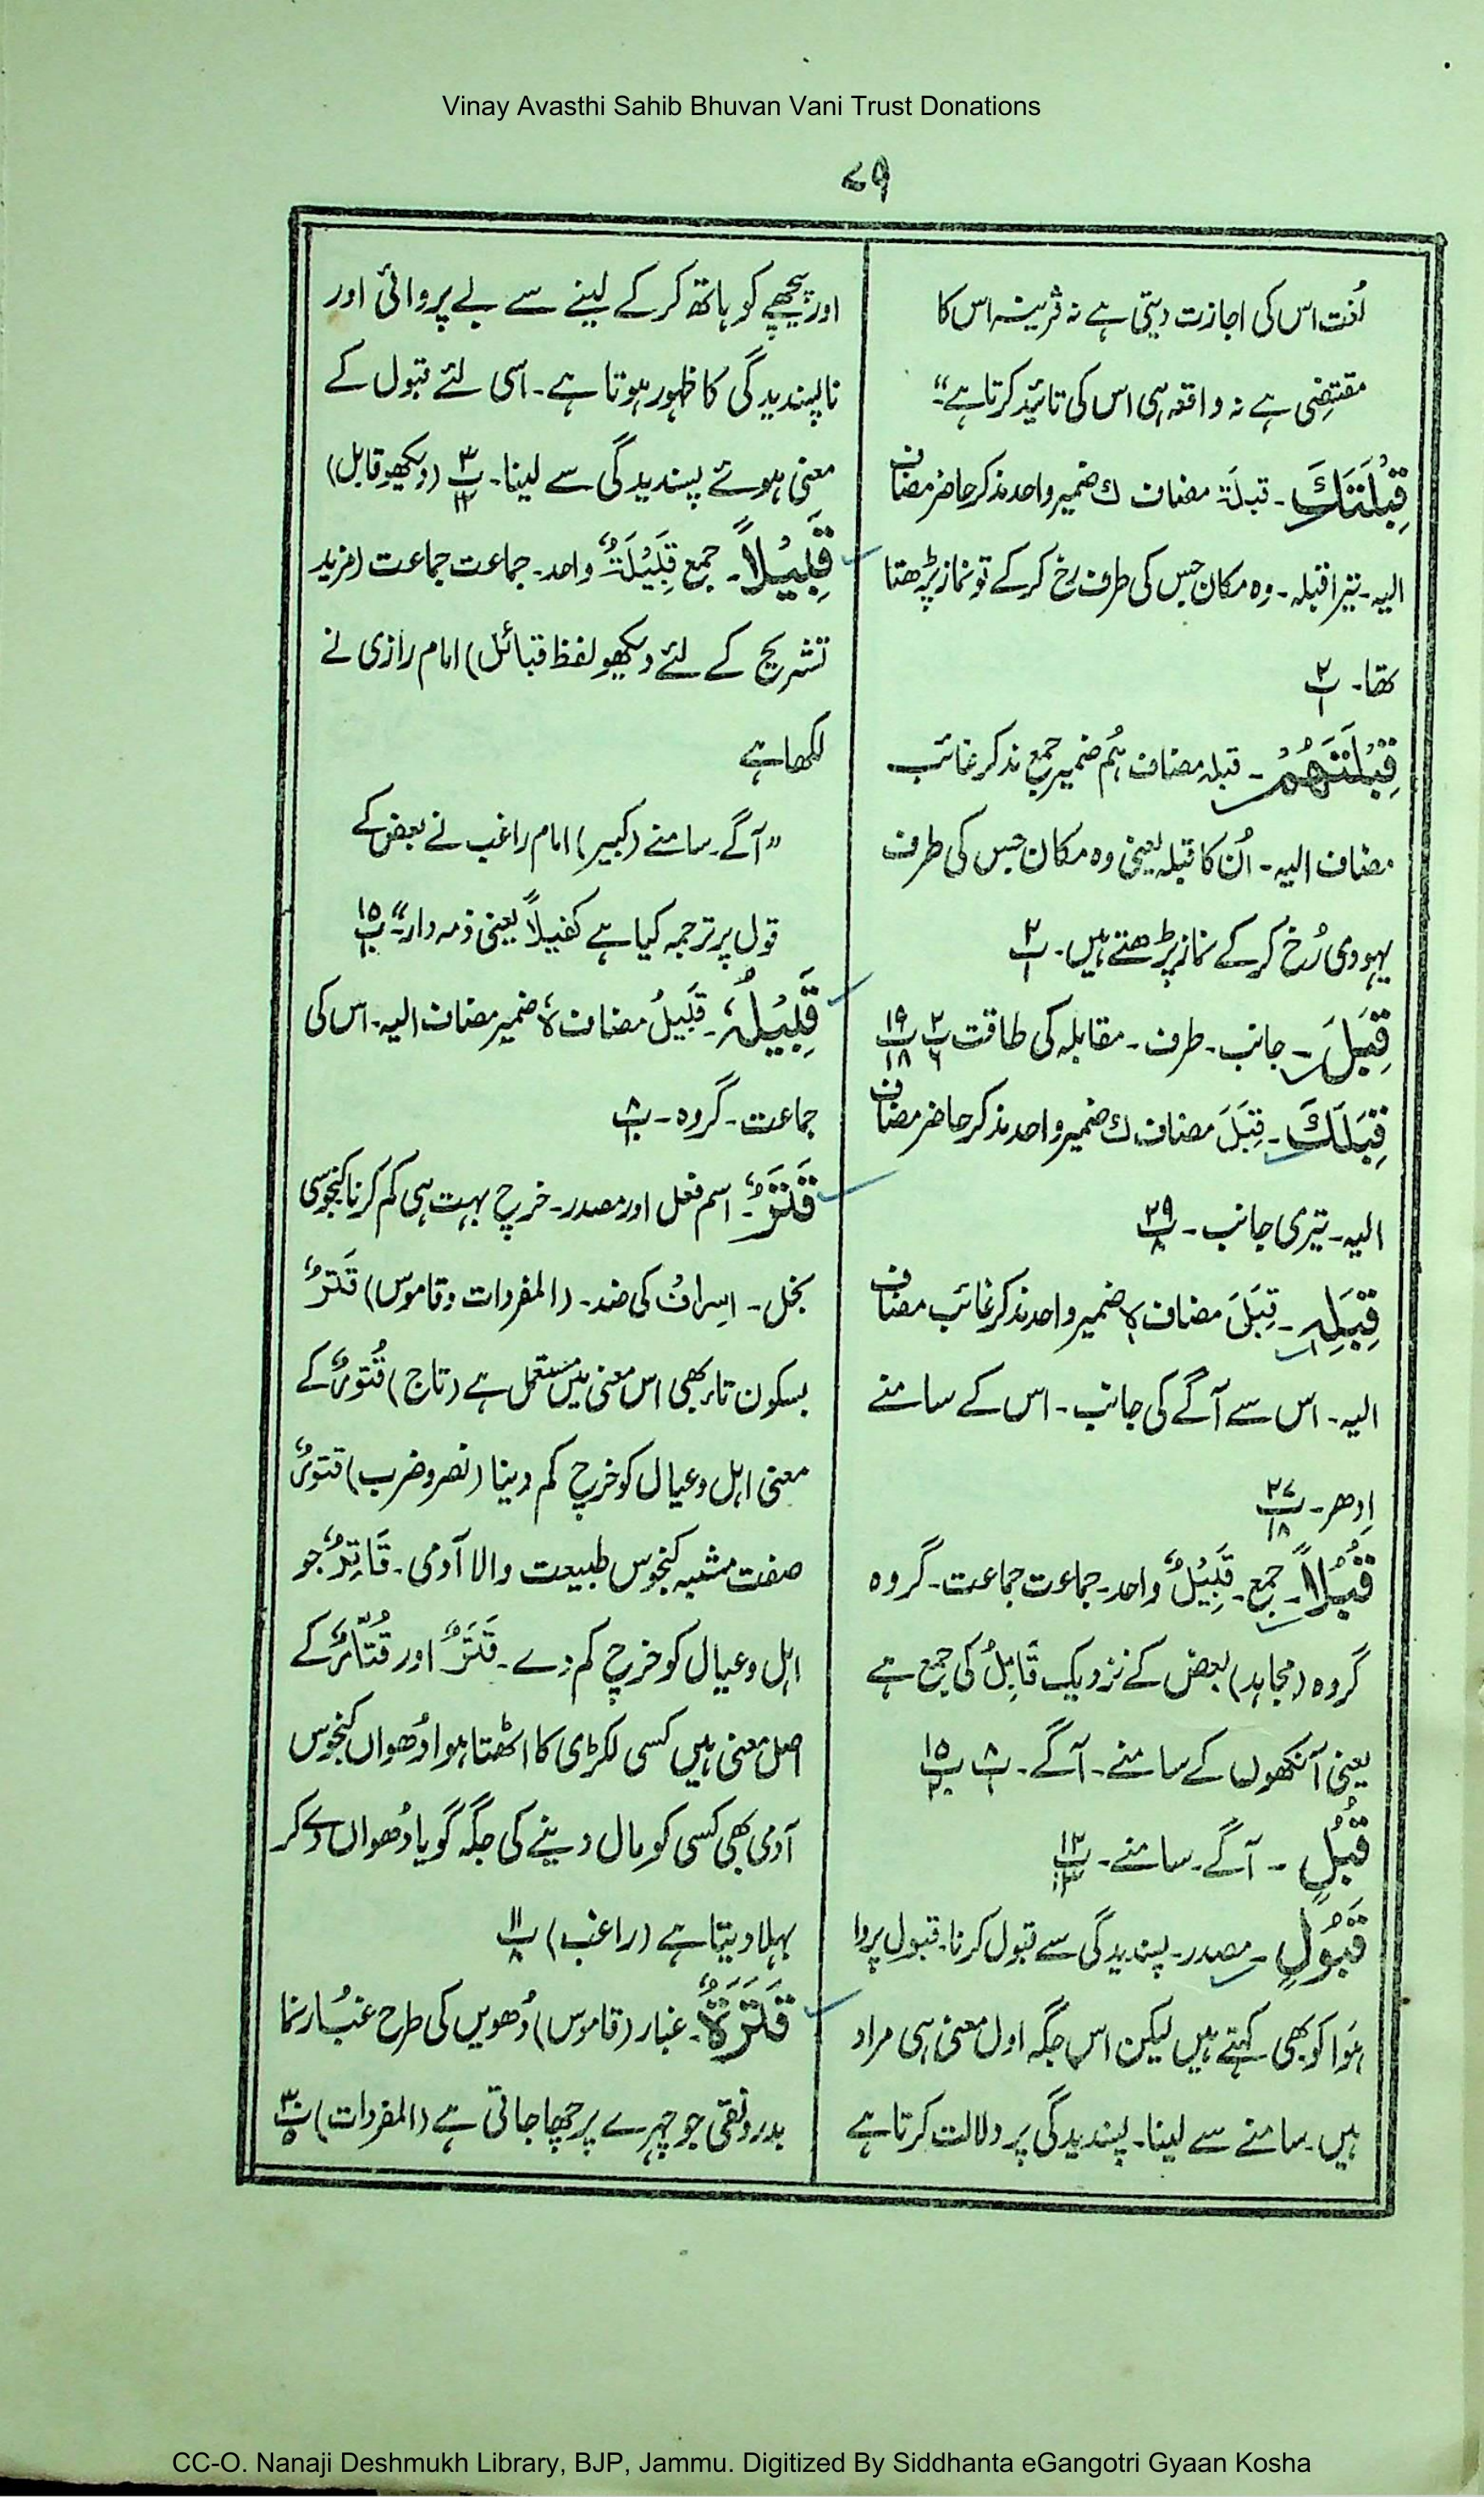 Vinay Avasthi Sahib Bhuvan Vani Trust Donations
۷۹
لُغت اس کی اجازت دیتی ہے نہ قرینہ اس کا
مقتضِی ہے نہ واقعہ ہی اس کی تائید کرتا ہے"۔
قِبْلَتَكَ۔ قبلۃَ مضاف ك ضمیر واحد مذکر حاضر مضاف
الیہ۔ تیرا قبلہ۔ وہ مکان جس کی طرف رخ کرکے تو نماز پڑھتا
تھا۔ پ۲/۱
قِبْلَتَهُمْ۔ قبلہ مضاف ہُم ضمیر جمع مذکر غائب
مضاف الیہ۔ اُن کا قبلہ یعنی وہ مکان جس کی طرف
یہودی رُخ کرکے نماز پڑھتے ہیں۔ پ۲/۱
قِبَلَ۔ جانب۔ طرف۔ مقابلہ کی طاقت پ۲/۶ پ۱۹/۱۸
قِبَلَكَ۔ قِبَلَ مضاف ك ضمیر واحد مذکر حاضر مضاف
الیہ۔ تیری جانب۔ پ۲۹/۸
قِبَلِهٖ۔ قِبَلَ مضاف ہٖ ضمیر واحد مذکر غائب مضاف
الیہ۔ اس سے آگے کی جانب۔ اس کے سامنے
اِدھر۔ پ۲۷/۱۸
قُبُلًا۔ جمع۔ قَبِیْلٌ واحد۔ جماعت جماعت۔ گروہ
گروہ (مجاہد) بعض کے نزدیک قَابِلٌ کی جمع ہے
یعنی آنکھوں کے سامنے۔ آگے۔ پ۸/۱ پ۱۵/۲۰
قُبُلٍ۔ آگے۔ سامنے۔ پ۱۲/۱۳
قَبُوْلٍ۔ مصدر۔ پسندیدگی سے قبول کرنا۔ قبول پروا
ہَوا کو بھی کہتے ہیں لیکن اس جگہ اول معنی ہی مراد
ہیں۔ سامنے سے لینا۔ پسندیدگی پر دلالت کرتا ہے
اور پیچھے کو ہاتھ کرکے لینے سے بے پروائی اور
ناپسندیدگی کا ظہور ہوتا ہے۔ اسی لئے قبول کے
معنی ہوئے پسندیدگی سے لینا۔ پ۳/۱۲ (دیکھو قابل)
قَبِيْلًا۔ جمع قَبِیْلَۃٌ واحد۔ جماعت جماعت (مزید
تشریح کے لئے دیکھو لفظ قبائل) امام رازی نے
لکھا ہے
"آگے۔ سامنے (کبیر) امام راغب نے بعض کے
قول پر ترجمہ کیا ہے کفیلاً یعنی ذمہ دار"۔ پ۱۵/۱۰
قَبِيْلُهٗ۔ قَبِیلُ مضاف ہٗ ضمیر مضاف الیہ۔ اس کی
جماعت۔ گروہ۔ پ۸/۱۰
قَتَرٌ۔ اسم فعل اور مصدر۔ خرچ بہت ہی کم کرنا کنجوسی
بخل۔ اسراف کی ضد۔ (المفردات وقاموس) قَترٌ
بسکون تا بھی اس معنی میں مستعمل ہے (تاج) قُتُورٌ کے
معنی اہل وعیال کو خرچ کم دینا (نصر وضرب) قتورٌ
صفت مشبہ کنجوس طبیعت والا آدمی۔ قَاتِرٌ جو
اہل وعیال کو خرچ کم دے۔ قَتَرٌ اور قُتَارٌ کے
اصل معنی ہیں کسی لکڑی کا اٹھتا ہوا دُھواں کنجوس
آدمی بھی کسی کو مال دینے کی جگہ گویا دُھواں دے کر
بہلا دیتا ہے (راغب) پ۱۱/۸
قَتَرَةٌ۔ غبار (قاموس) دُھویں کی طرح غبُار نما
بدرونقی جو چہرے پر چھا جاتی ہے (المفردات) پ۳۰/۵
CC-O. Nanaji Deshmukh Library, BJP, Jammu. Digitized By Siddhanta eGangotri Gyaan Kosha